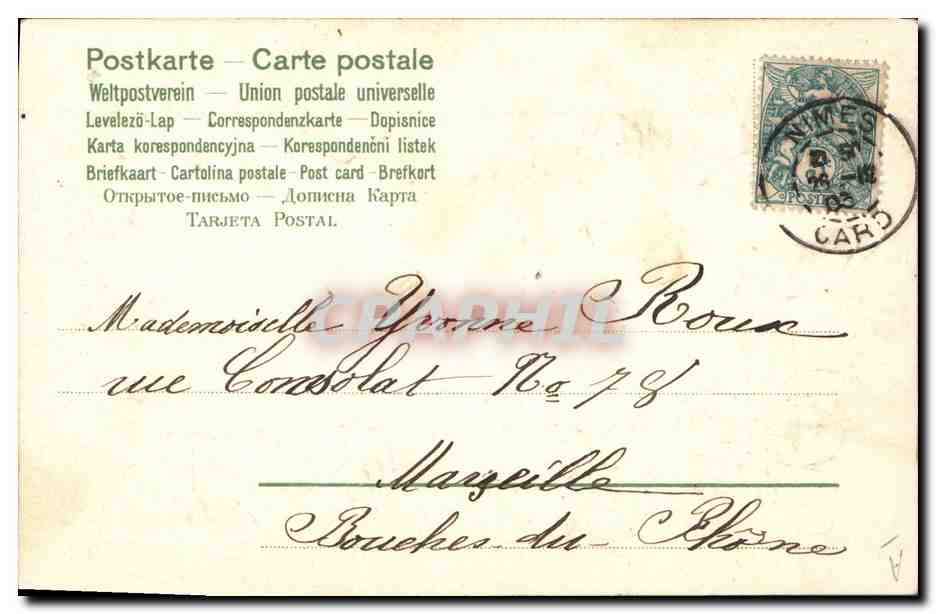 Postkarte — Carte postale
Weltpostverein — Union postale universelle
Levelező-Lap — Correspondenzkarte — Dopisnice
Karta korespondencyjna — Korespondenční listek
Briefkaart - Cartolina postale - Post card - Brefkort
Открытое-письмо — Дописна Карта
Tarjeta Postal
NIMES
03
GARD
CPAPHIL
Mademoiselle Yvonne Roux
rue Consolat No 78
Marseille
Bouches-du-Rhône